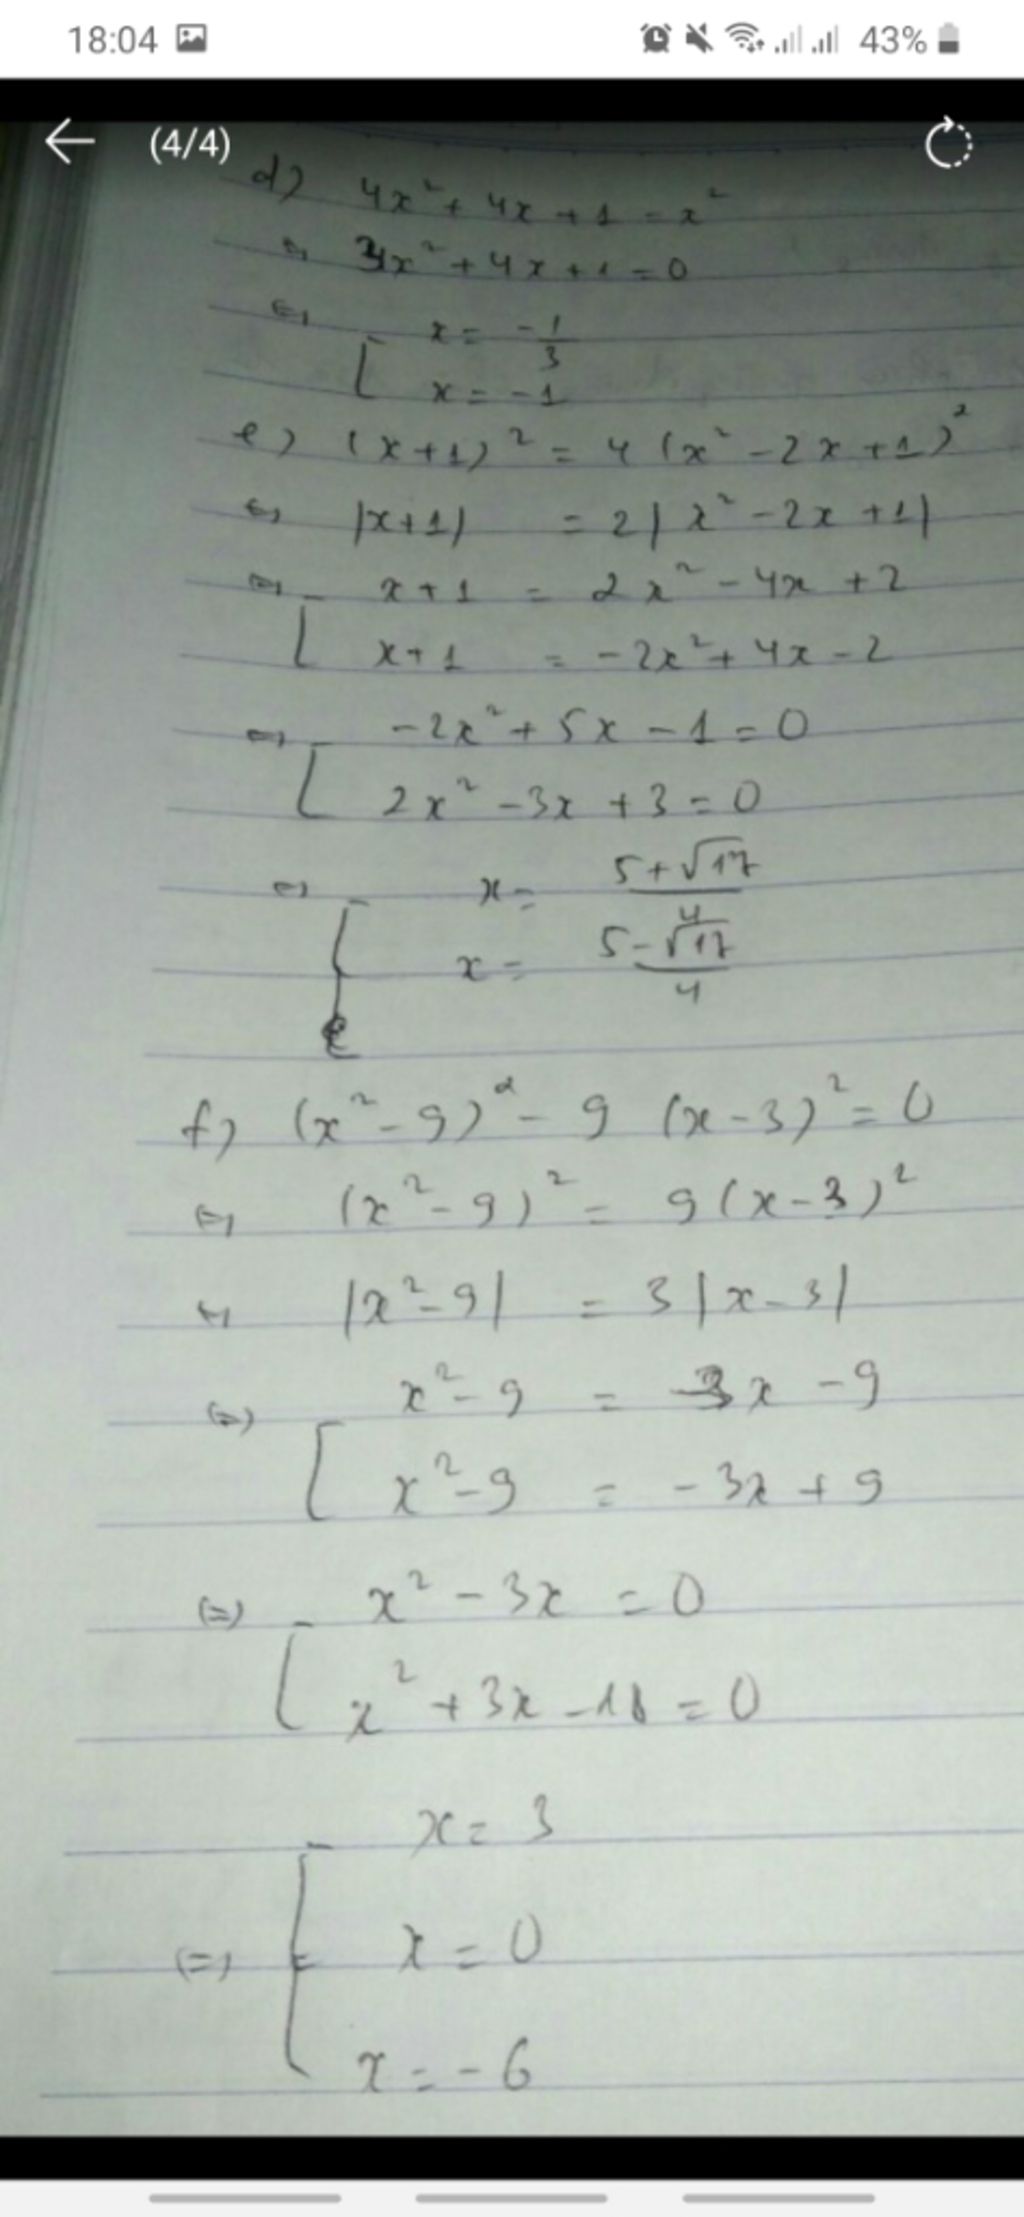 18:04 43%
(4/4)
d) 4x² + 4x + 1 = x²
⇔ 3x² + 4x + 1 = 0
⇔ [ x = -1/3
x = -1
e) (x+1)² = 4(x² - 2x + 1)²
⇔ |x+1| = 2|x² - 2x + 1|
⇔ [ x + 1 = 2x² - 4x + 2
x + 1 = -2x² + 4x - 2
⇔ [ -2x² + 5x - 1 = 0
2x² - 3x + 3 = 0
⇔ [ x = (5 + √17)/4
x = (5 - √17)/4
f) (x² - 9)² - 9 (x - 3)² = 0
⇔ (x² - 9)² = 9(x - 3)²
⇔ |x² - 9| = 3|x - 3|
⇔ [ x² - 9 = 3x - 9
x² - 9 = -3x + 9
⇔ [ x² - 3x = 0
x² + 3x - 18 = 0
⇔ [ x = 3
x = 0
x = -6